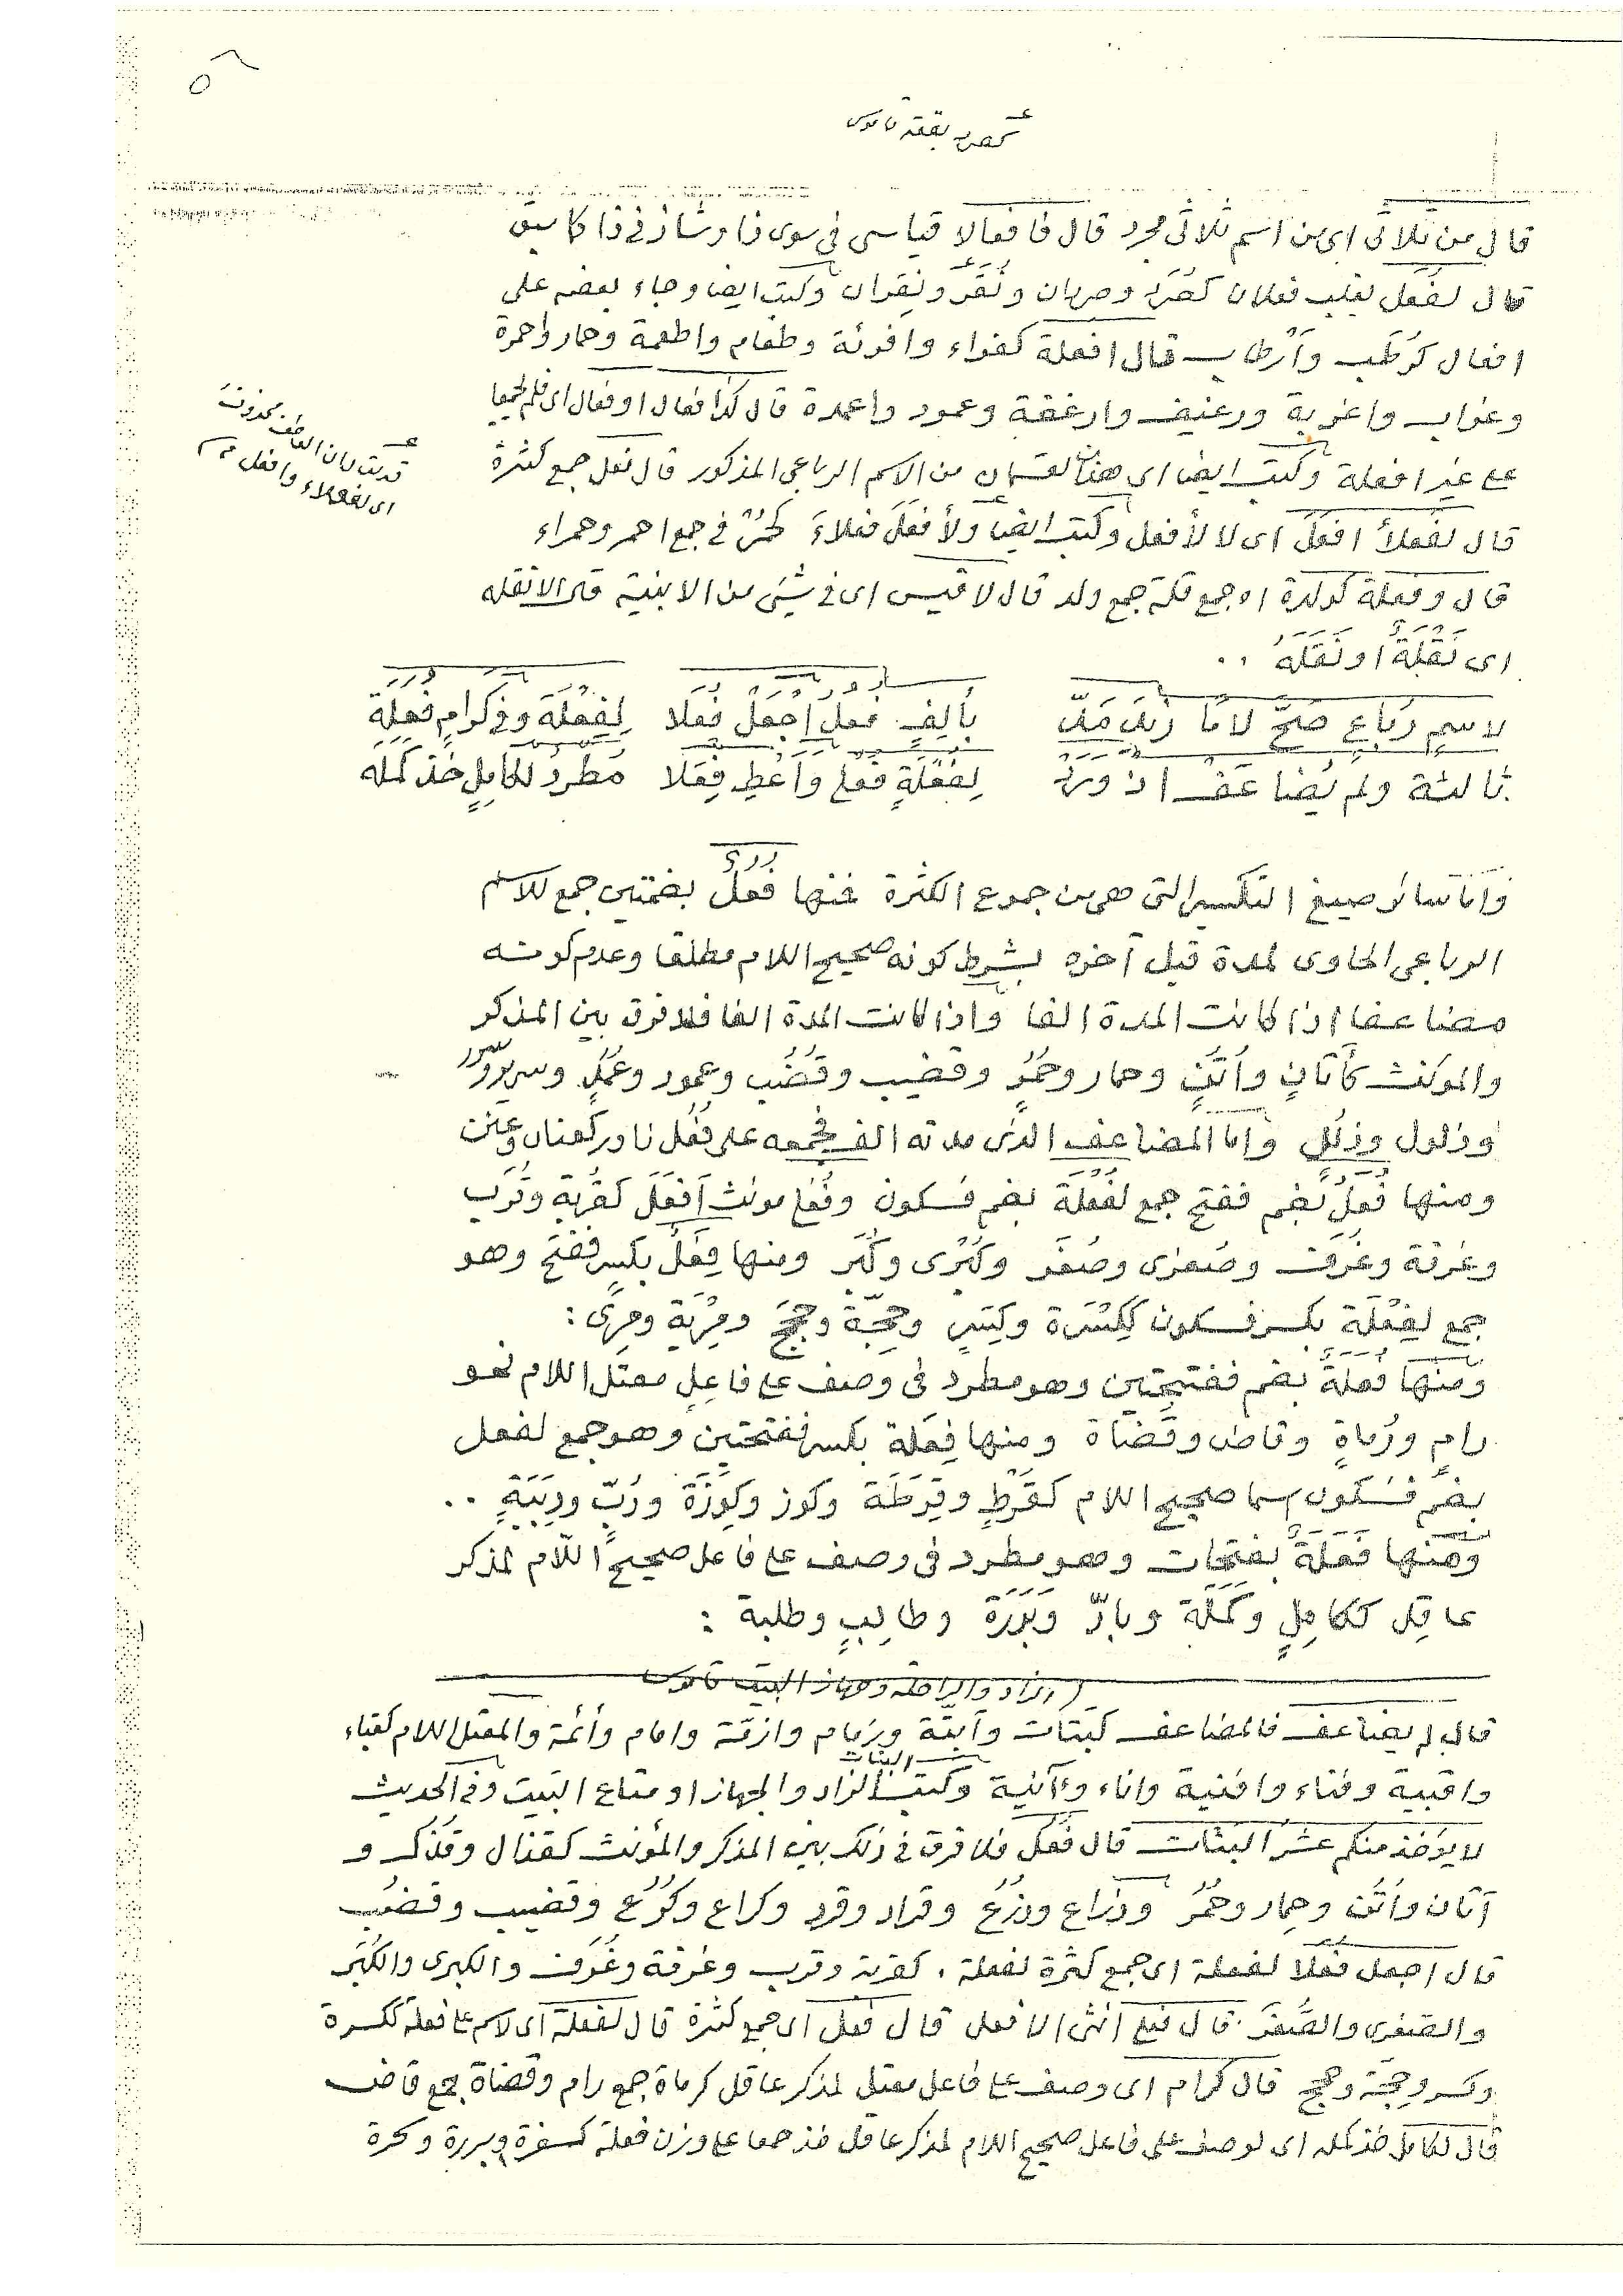 قال من ثلاثى اى من اسم ثلاثى مجرد قال فافعالا قياسى فى سوى ذا وشاذ فى ذا كما سبق
قال لفعل يغلب فعلان كصُرَد وصردان ونُغَر ونِغران وكتب ايضا وجاء بعضه على
افعال كرُطَب وأرطاب قال افعلة كفراء وافرئة وطعام واطعمة وحمار واحمرة
وغراب واغربة ورغيف وارغفة وعمود واعمدة قال كذا فعال او فعال اى فلم يجمعا
على غير افعلة وكتب ايضا اى هذان القسمان من الاسم الرباعى المذكور قال فعل جمع كثرة
قال لفَعلأ افعَل اى لا لأفعل وكتب ايضا ولأفعَل فعلاءَ كحُمْرٌ فى جمع احمر وحمراء
قال وفعلة كولدة اه جمع قلة جمع ولد قال لا قيس اى فى شيئ من الابنية قال الا نقله
اى نَقْلَهُ او نَقَلَهُ ..
لاسمٍ رُباعٍ صَحَّ لامًا زِيْدَ مَدّ بألِفٍ فُعلٌ اجعَلْ فُعَلا لِفِعْلَة وفى كرامٍ فُعَلَة
ثالثه ولم يُضاعَفْ اذ وَرَدْ لِفُعْلَةٍ فُعْلى وأعْطِ فِعَلا مُطّردٌ لكامِلٍ خُذ كمَلَه
واما سائر صيغ التكسير التى هى من جموع الكثرة فمنها فُعُلٌ بضمتين جمع للاسم
الرباعى الحاوى لمدة قبل آخره بشرط كونه صحيح اللام مطلقا وعدم كونه
مضاعفا اذا كانت المدة الفا واذا كانت المدة الفا فلا فرق بين المذكر
والمؤنث كأتانٍ واُتُنٍ وحمار وحُمُرٍ وقضيب وقُضُب وعمود وعُمُدٍ وسرير وسُرُر
وذلول وذُلُلٍ واما المضاعف الذى مدته الف فجمعه على فُعُل نادر كعنان وعُنُن
ومنها فُعَلٌ بضم ففتح جمع لفُعْلَة بضم فسكون وفُعْلى مونث اَفعَل كقُربة وقُرَب
وغُرفة وغُرَف وصُغرى وصُغَر وكُبْرى وكُبَر ومنها فِعَلٌ بكسر ففتح وهو
جمع لفِعْلَة بكسر فسكون ككِسْرَة وكِسَرٍ وحِجّة وحِجَج ومِرْيَة ومِرًى :
ومنها فُعَلَةٌ بضم ففتحتين وهو مطرد فى وصف على فاعِلٍ معتل اللام نحو
رامٍ ورُماةٍ وقاض وقُضاة ومنها فِعَلَة بكسر ففتحتين وهو جمع لفعل
بضمٍّ فسكون اسما صحيح اللام كقُرْطٍ وقِرَطَة وكوز وكِوَزَة ودُبّ ودِبَبَةٍ ..
ومنها فَعَلَةٌ بفتحات وهو مطرد فى وصف على فاعل صحيح اللام لمذكر
عاقِل ككامِلٍ وكَمَلَة وبارّ وبَرَرَة وطالِبٍ وطلبة :
قال لم يضاعف فالمضاعف كبَتات وأبتّة وزِمام وازمّة وامام وأئمة والمعتل اللام كقباء
واقبية وفناء وافنية واناء وآنية وكتب البتات الزاد والجهاز او متاع البيت وفى الحديث
لا يؤخذ منكم عشر البتات قال فُعُل فلا فرق فى ذلك بين المذكر والمؤنث كقذال وقُذُل و
أتان واُتُن وحِمار وحُمُر وذِراع وذُرُع وقراد وقرد وكراع وكُرُع وقضيب وقضُب
قال اجعل فعلا لفعلة اى جمع كثرة لفعلة . كقربة وقرب وغرفة وغُرَف والكبرى والكُبَر
والصغرى والصُّغَر . قال فعلى انثى الافعل قال فعل اى جمع كثرة قال لفعلة اى لاسم على فعلة ككسرة
وكسر وحِجّة وحِجج قال كرام اى وصف على فاعل معتل لمذكر عاقل كرماة جمع رام وقضاة جمع قاض
قال لكامل خذ كمله اى لوصف على فاعل صحيح اللام لمذكر عاقل خذ جمعا على وزن فعلة كسفرة وبررة وسحرة